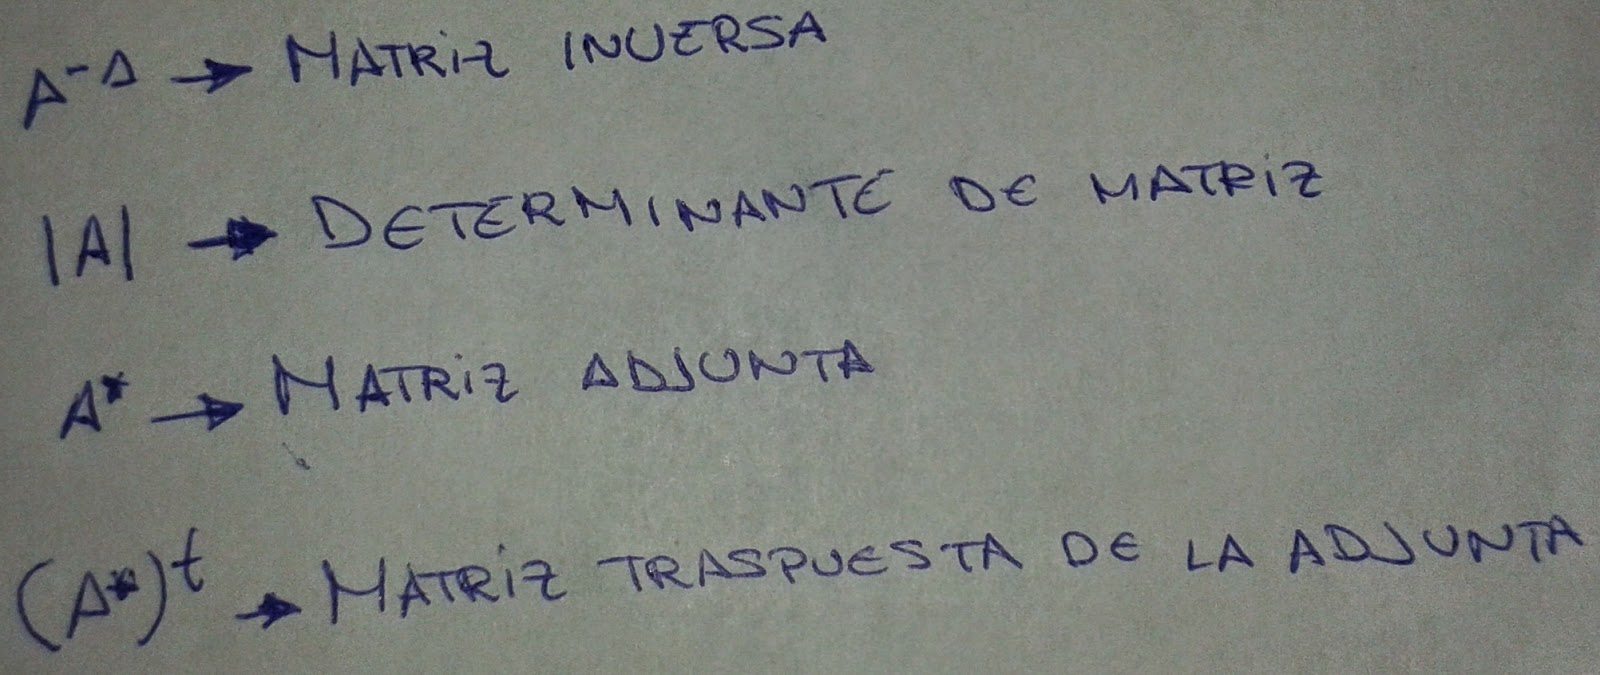 A⁻¹ → MATRIZ INVERSA
|A| → DETERMINANTE DE MATRIZ
A* → MATRIZ ADJUNTA
(A*)ᵗ → MATRIZ TRASPUESTA DE LA ADJUNTA